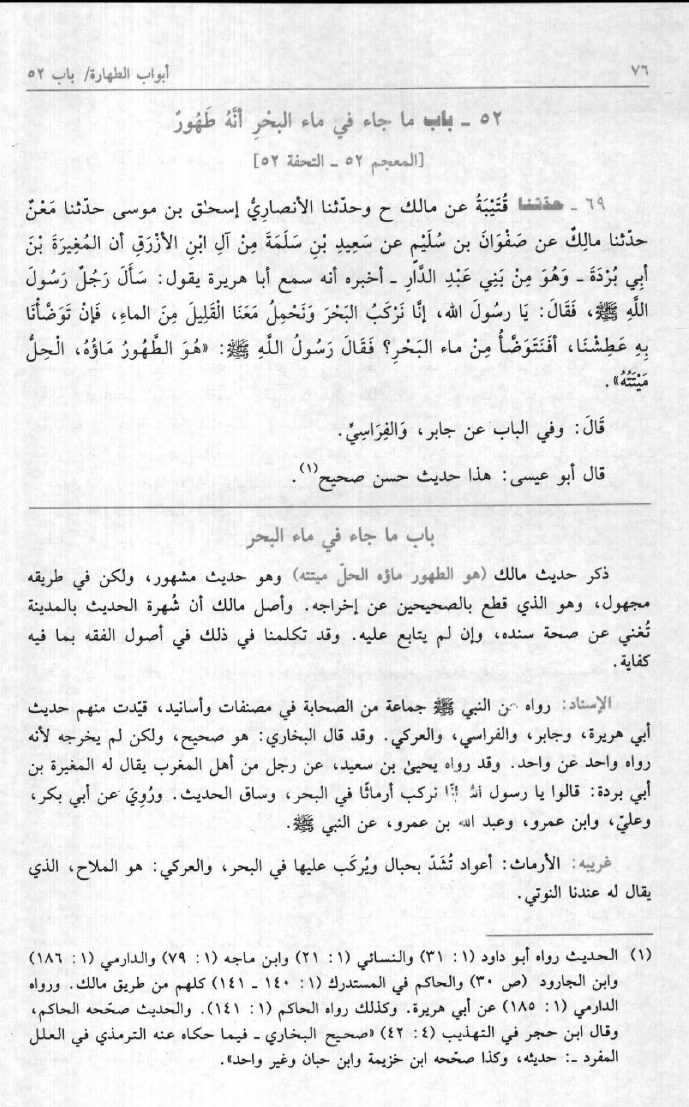 ٧٦ أبواب الطهارة/ باب ٥٢
٥٢ ـ باب ما جاء في ماء البحْرِ أنَّهُ طَهُورٌ
[المعجم ٥٢ ـ التحفة ٥٢]
٦٩ ـ حدّثنا قُتَيْبَةُ عن مالك ح وحدّثنا الأنصاريُّ إسحـٰق بن موسى حدّثنا مَعْنٌ
حدّثنا مالِكٌ عن صَفْوَانَ بن سُلَيْمٍ عن سَعِيدِ بْنِ سَلَمَةَ مِنْ آلِ ابْنِ الأزْرَقِ أن المُغِيرَةَ بْنَ
أبِي بُرْدَةَ ـ وَهُوَ مِنْ بَنِي عَبْدِ الدَّارِ ـ أخبره أنه سمع أبا هريرة يقول: سَأَلَ رَجُلٌ رَسُولَ
اللَّهِ ﷺ، فَقَالَ: يَا رسُولَ الله، إنَّا نَرْكَبُ البَحْرَ وَنَحْمِلُ مَعَنَا الْقَلِيلَ مِنَ الماءِ، فَإنْ تَوَضَّأْنَا
بِهِ عَطِشْنَا، أفَنَتَوَضَّأُ مِنْ ماء البَحْرِ؟ فَقَالَ رَسُولُ اللَّهِ ﷺ: «هُوَ الطَّهُورُ مَاؤُهُ، الْحِلُّ
مَيْتَتُهُ».
قَالَ: وفي الباب عن جابر، وَالفِرَاسِيِّ.
قال أبو عيسى: هذا حديث حسن صحيح(١).
باب ما جاء في ماء البحر
ذكر حديث مالك (هو الطهور ماؤه الحلّ ميتته) وهو حديث مشهور، ولكن في طريقه
مجهول، وهو الذي قطع بالصحيحين عن إخراجه. وأصل مالك أن شُهرة الحديث بالمدينة
تُغني عن صحة سنده، وإن لم يتابع عليه. وقد تكلمنا في ذلك في أصول الفقه بما فيه
كفاية.
الإسناد: رواه عن النبي ﷺ جماعة من الصحابة في مصنفات وأسانيد، قيّدت منهم حديث
أبي هريرة، وجابر، والفراسي، والعركي. وقد قال البخاري: هو صحيح، ولكن لم يخرجه لأنه
رواه واحد عن واحد. وقد رواه يحيىٰ بن سعيد، عن رجل من أهل المغرب يقال له المغيرة بن
أبي بردة: قالوا يا رسول الله إنّا نركب أرماثًا في البحر، وساق الحديث. ورُوِيَ عن أبي بكر،
وعليّ، وابن عمرو، وعبد الله بن عمرو، عن النبي ﷺ.
غريبه: الأرماث: أعواد تُشَدّ بحبال ويُركَب عليها في البحر، والعركي: هو الملاح، الذي
يقال له عندنا النوتي.
(١) الحديث رواه أبو داود (١: ٣١) والنسائي (١: ٢١) وابن ماجه (١: ٧٩) والدارمي (١: ١٨٦)
وابن الجارود (ص ٣٠) والحاكم في المستدرك (١: ١٤٠ ـ ١٤١) كلهم من طريق مالك. ورواه
الدارمي (١: ١٨٥) عن أبي هريرة. وكذلك رواه الحاكم (١: ١٤١). والحديث صحّحه الحاكم،
وقال ابن حجر في التهذيب (٤: ٤٢) «صحيح البخاري ـ فيما حكاه عنه الترمذي في العلل
المفرد ـ: حديثه، وكذا صحّحه ابن خزيمة وابن حبان وغير واحد».